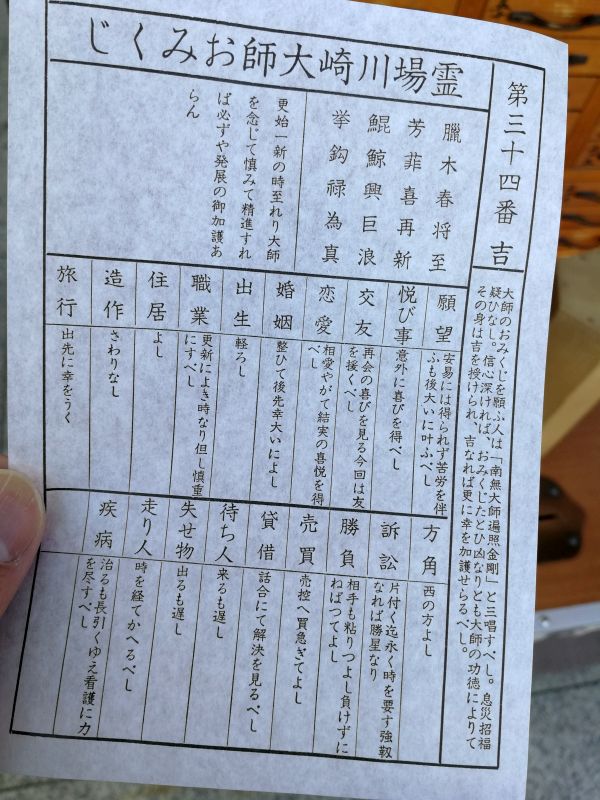 第三十四番 吉
大師のおみくじを願ふ人は「南無大師遍照金剛」と三唱すべし。息災招福
疑ひなし。信心深ければ、おみくじたとひ凶なりとも大師の功徳によりて
その身は吉を授けられ、吉なれば更に幸を加護せらるべし。
霊場川崎大師おみくじ
臘木春将至
芳菲喜再新
鯤鯨興巨浪
挙鈎禄為真
更始一新の時至れり大師
を念じて慎みて精進すれ
ば必ずや発展の御加護あ
らん
願望
安易には得られず苦労を伴
ふも後大いに叶ふべし
悦び事
意外に喜びを得べし
交友
再会の喜びを見る今回は友
を援くべし
恋愛
相愛やがて結実の喜悦を得
べし
婚姻
整ひて後先幸大いによし
出生
軽ろし
職業
更新によき時なり但し慎重
にすべし
住居
よし
造作
さわりなし
旅行
出先に幸をうく
方角
西の方よし
訴訟
片付く迄永く時を要す強靱
なれば勝星なり
勝負
相手も粘りつよし負けずに
ねばつてよし
売買
売控へ買急ぎてよし
貸借
話合にて解決を見るべし
待ち人
来るも遅し
失せ物
出るも遅し
走り人
時を経てかへるべし
疾病
治るも長引くゆえ看護に力
を尽すべし